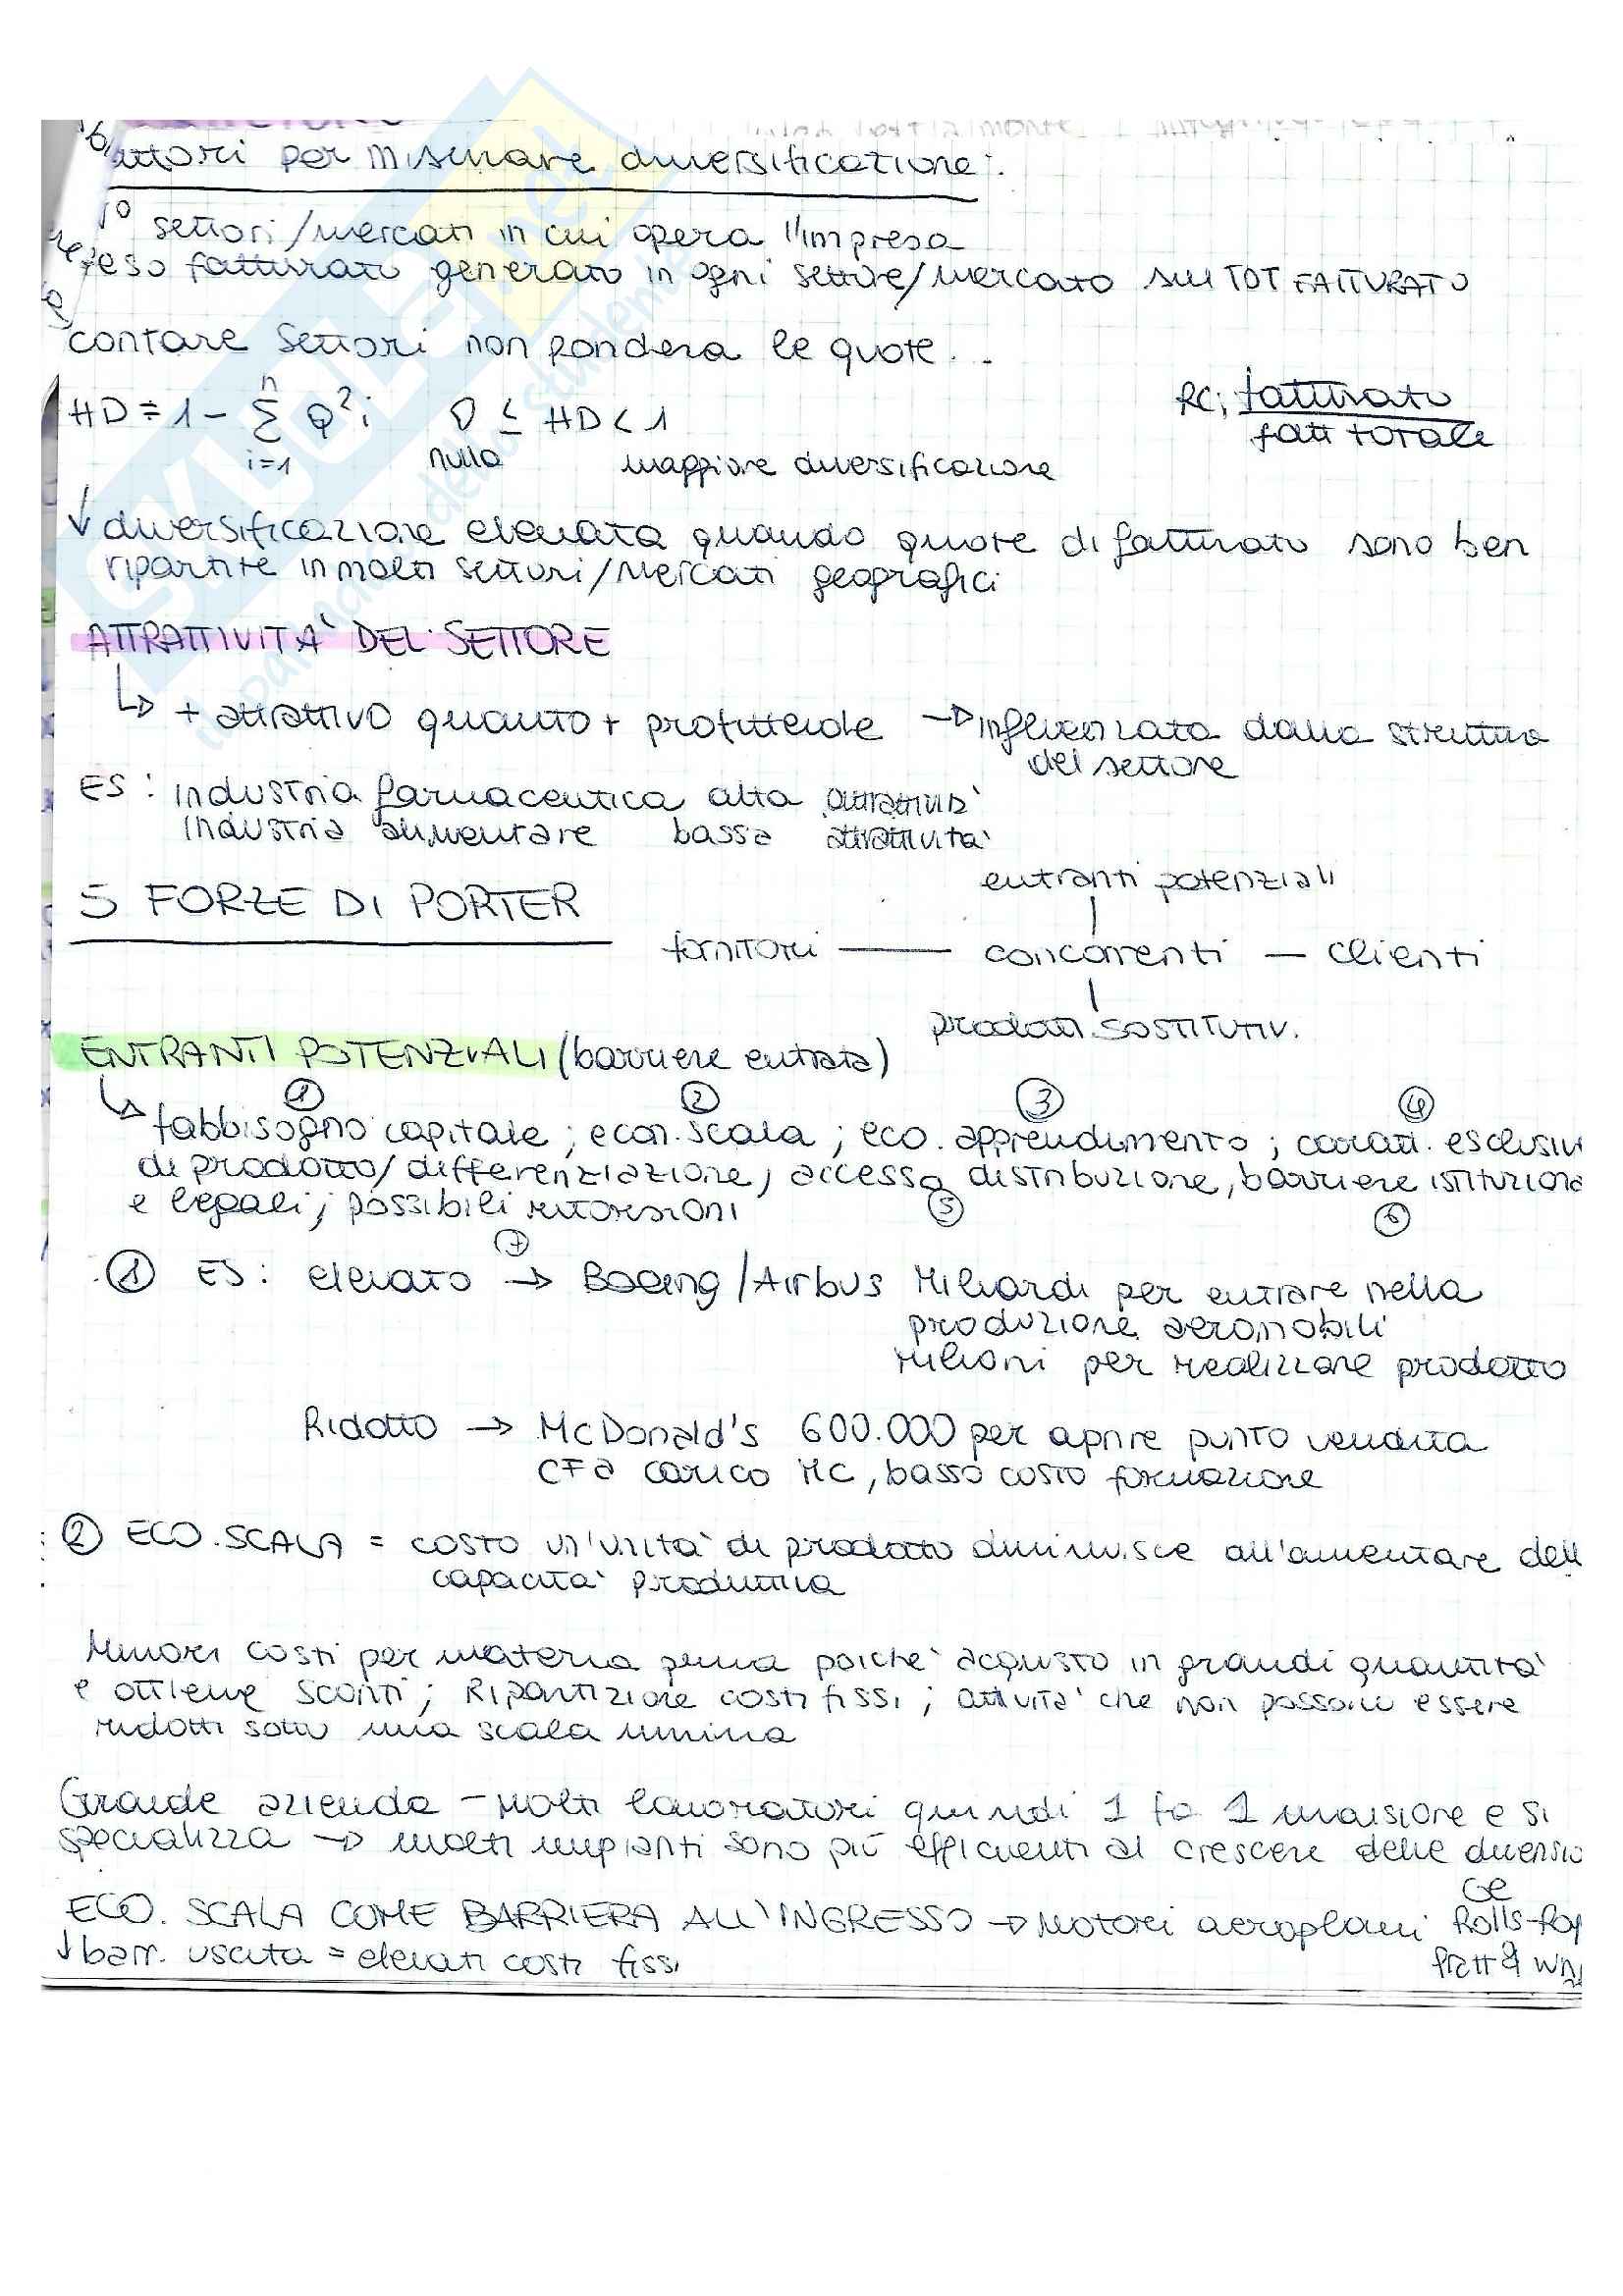 attori per misurare diversificazione:
n° settori/mercati in cui opera l'impresa
peso fatturato generato in ogni settore/mercato sul TOT FATTURATO
contare settori non pondera le quote...
HD = 1 - Σ Q²i   0 ≤ HD < 1   RCi fatturato
n
i=1   nulla   maggiore diversificazione   fatt totale
↓ diversificazione elevata quando quote di fatturato sono ben
ripartite in molti settori/mercati geografici
ATTRATTIVITA' DEL SETTORE
↳ + attrattivo quanto + profittevole → influenzata dalla struttura
del settore
ES: industria farmaceutica alta attrattività
industria alimentare bassa attrattività
entranti potenziali
5 FORZE DI PORTER
fornitori — concorrenti — clienti
prodotti sostitutivi
ENTRANTI POTENZIALI (barriere entrata)
① ② ③ ④
↳ fabbisogno capitale; econ. scala; eco. apprendimento; caratt. esclusiv
di prodotto/differenziazione, accesso distribuzione, barriere istituziona
e legali; possibili ritorsioni ⑤ ⑥
⑦
① ES: elevato → Boeing/Airbus Miliardi per entrare nella
produzione aeromobili
Milioni per realizzare prodotto
Ridotto → McDonald's 600.000 per aprire punto vendita
CF a carico MC, basso costo formazione
② ECO. SCALA = costo un'unità di prodotto diminuisce all'aumentare dell
capacità produttiva
Minori costi per materia prima poiché acquisto in grandi quantità
e ottiene sconti; Ripartizione costi fissi; attività che non possono essere
ridotti sotto una scala minima
Grande azienda - Molti lavoratori quindi 1 fa 1 mansione e si
specializza → molti impianti sono più efficienti al crescere delle dimensio
GE
ECO. SCALA COME BARRIERA ALL'INGRESSO → Motori aeroplani Rolls-Roy
↓ barr. uscita = elevati costi fissi   Pratt & Wh
SKUOLA.net
il paradiso dello studente